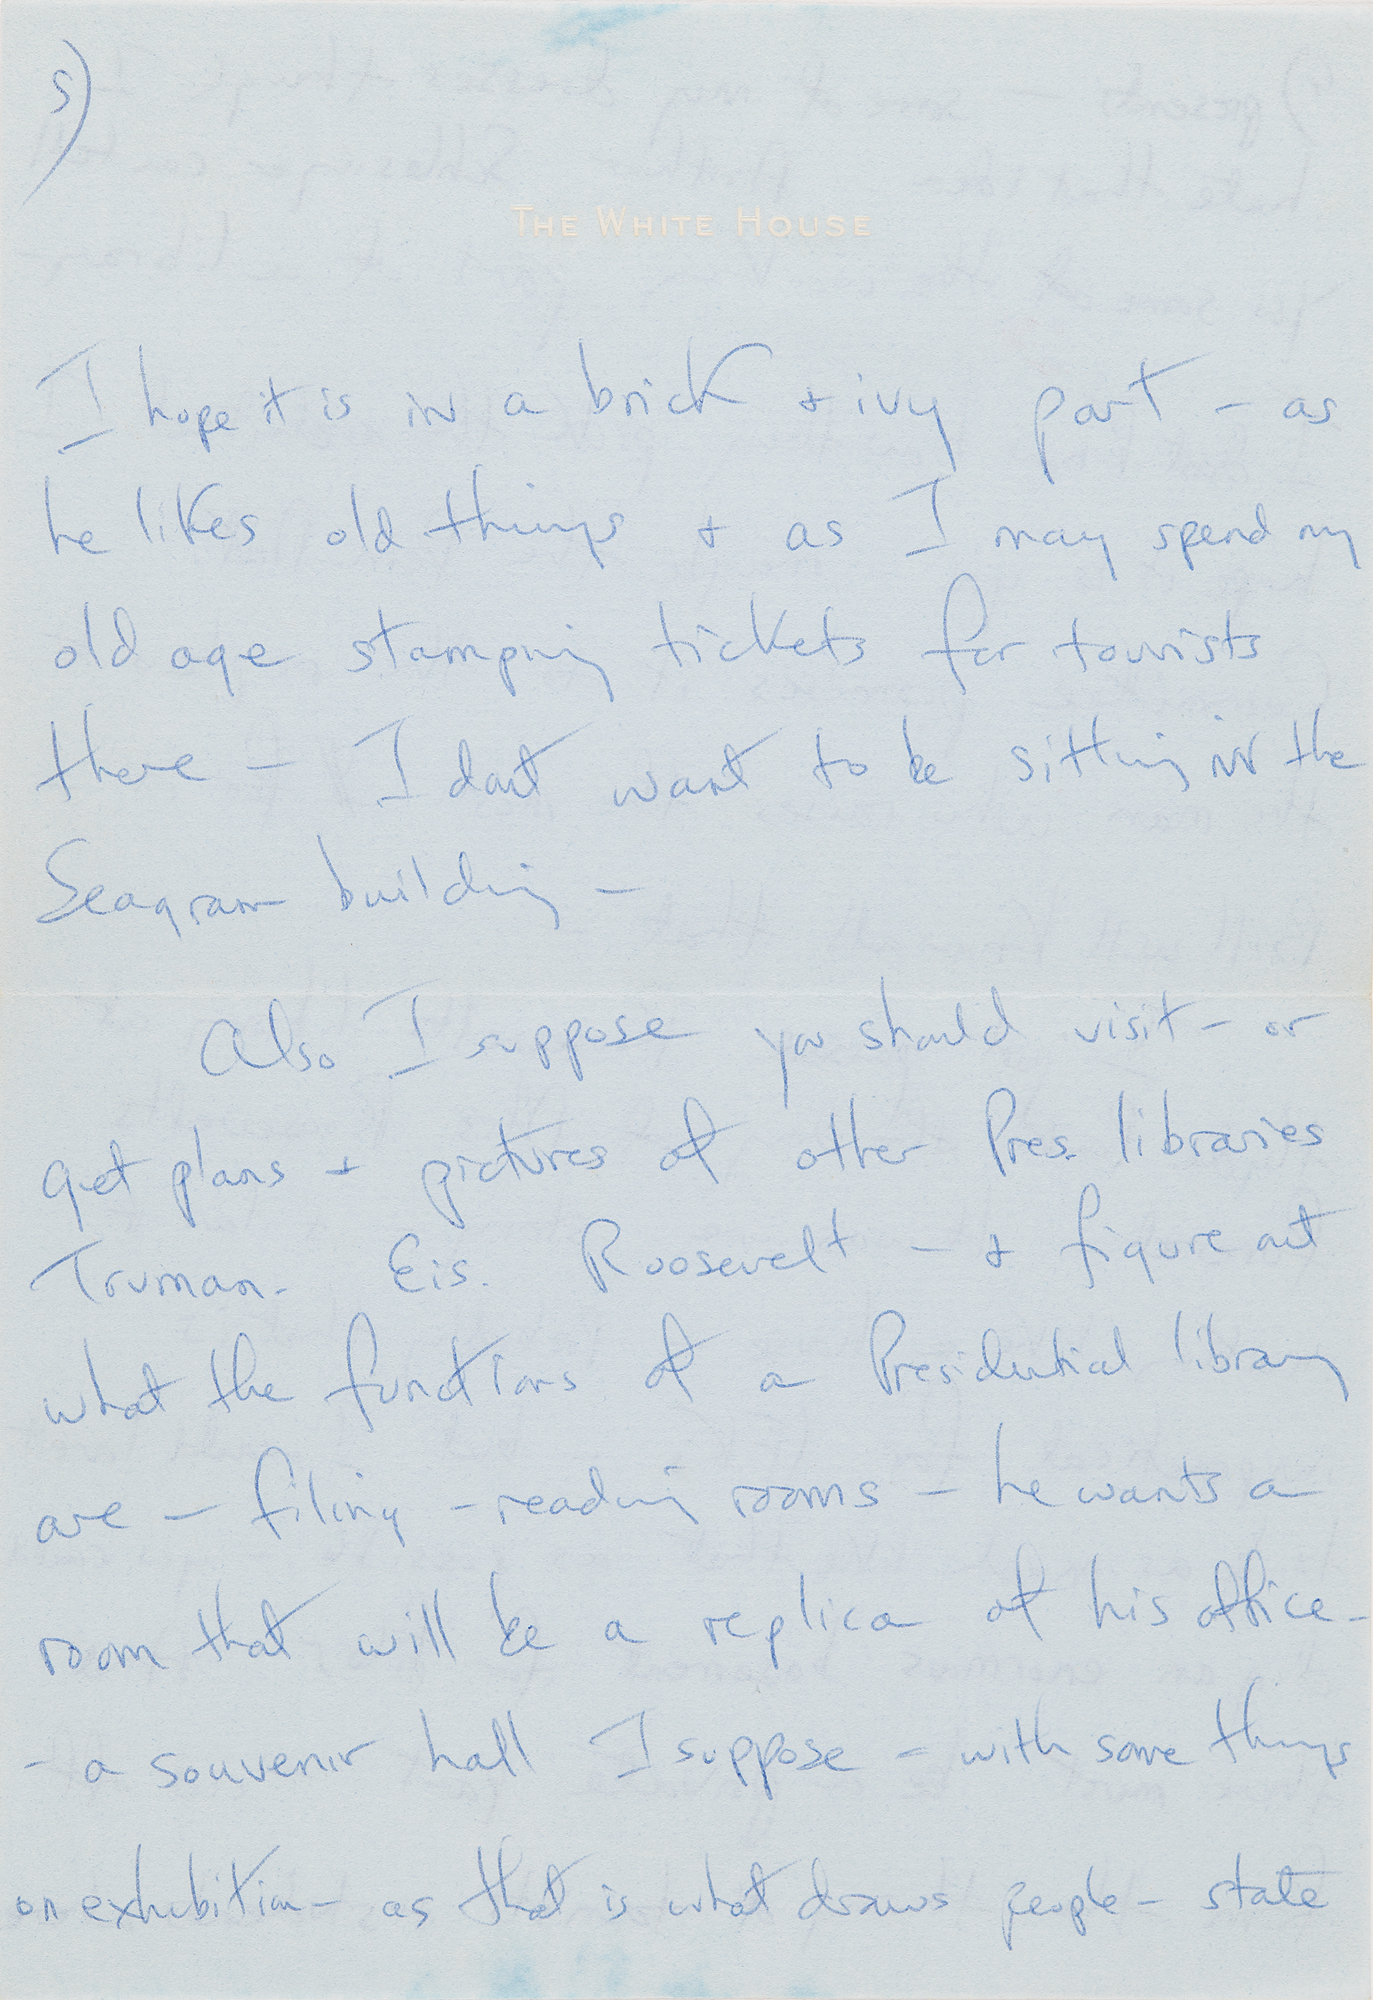 5)
THE WHITE HOUSE
I hope it is in a brick + ivy part – as
he likes old things + as I may spend my
old age stamping tickets for tourists
there – I dont want to be sitting in the
Seagram building –
Also I suppose you should visit – or
get plans + pictures of other Pres. libraries
Truman. Eis. Roosevelt – + figure out
what the functions of a Presidential library
are – filing – reading rooms – he wants a
room that will be a replica of his office –
– a souvenir hall I suppose – with some things
on exhibition – as that is what draws people – state